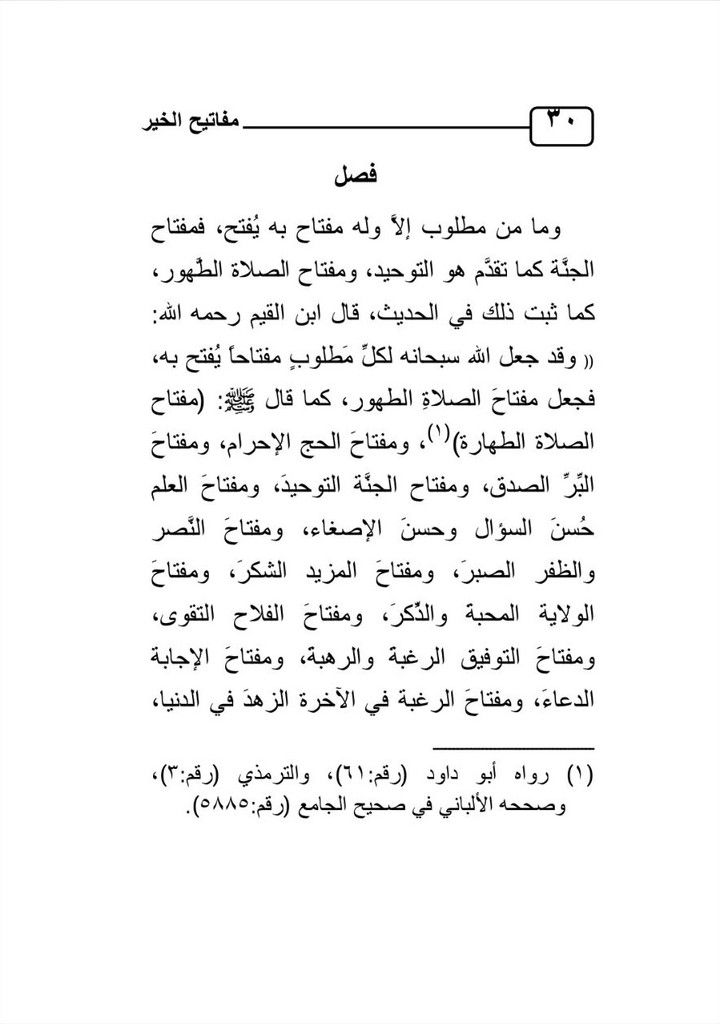 مفاتيح الخير ٣٠
فصل
وما من مطلوب إلاَّ وله مفتاح به يُفتح، فمفتاح
الجنَّة كما تقدَّم هو التوحيد، ومفتاح الصلاة الطّهور،
كما ثبت ذلك في الحديث، قال ابن القيم رحمه الله:
(( وقد جعل الله سبحانه لكلِّ مَطلوبٍ مفتاحاً يُفتح به،
فجعل مفتاحَ الصلاةِ الطهور، كما قال ﷺ: (مفتاح
الصلاة الطهارة)(١)، ومفتاحَ الحج الإحرام، ومفتاحَ
البِّرِّ الصدق، ومفتاح الجنَّة التوحيدَ، ومفتاحَ العلم
حُسنَ السؤال وحسنَ الإصغاء، ومفتاحَ النَّصر
والظفر الصبرَ، ومفتاحَ المزيد الشكرَ، ومفتاحَ
الولاية المحبة والذِّكرَ، ومفتاحَ الفلاح التقوى،
ومفتاحَ التوفيق الرغبةَ والرهبةَ، ومفتاحَ الإجابة
الدعاءَ، ومفتاحَ الرغبة في الآخرة الزهدَ في الدنيا،
(١) رواه أبو داود (رقم:٦١)، والترمذي (رقم:٣)،
وصححه الألباني في صحيح الجامع (رقم:٥٨٨٥).